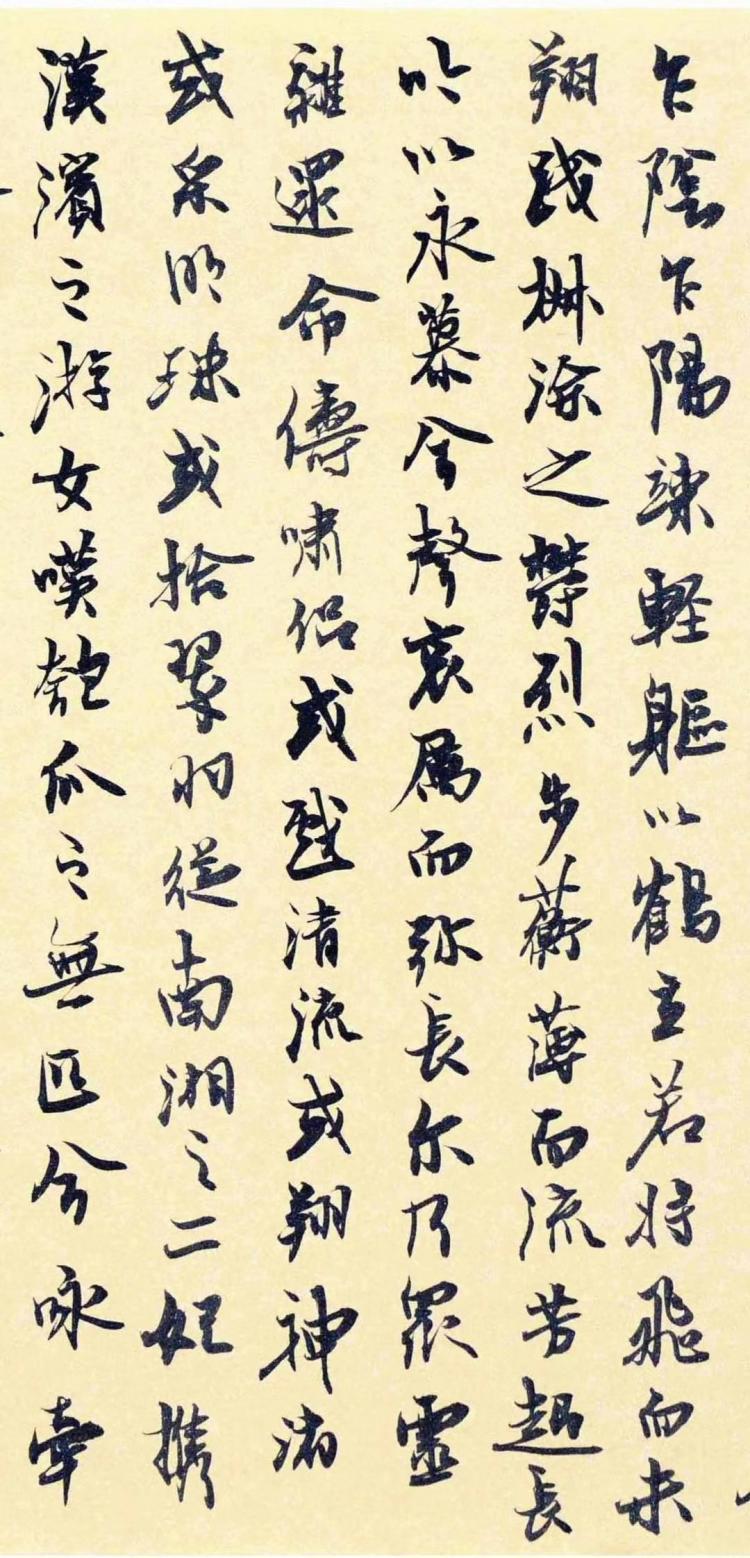 乍陰乍陽竦輕軀以鶴立若將飛而未
翔踐椒涂之鬱烈步蘅薄而流芳超長
吟以永慕兮聲哀厲而弥長尔乃眾靈
雜遝命儔嘯侶或戲清流或翔神渚
或采明珠或拾翠羽從南湘之二妃攜
漢濱之游女嘆匏瓜之無匹兮咏牽